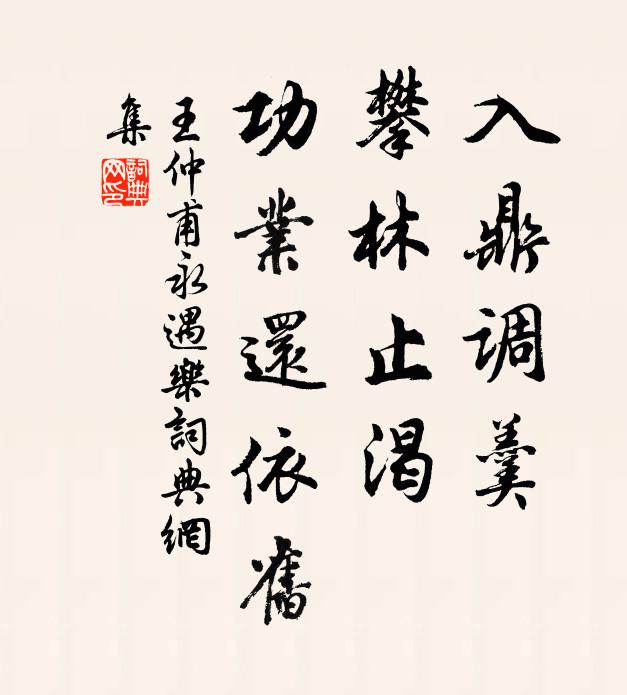 入鼎調羹
攀林止渴
功業還依舊
王仲甫永遇樂詞典網
集
詞典
网印